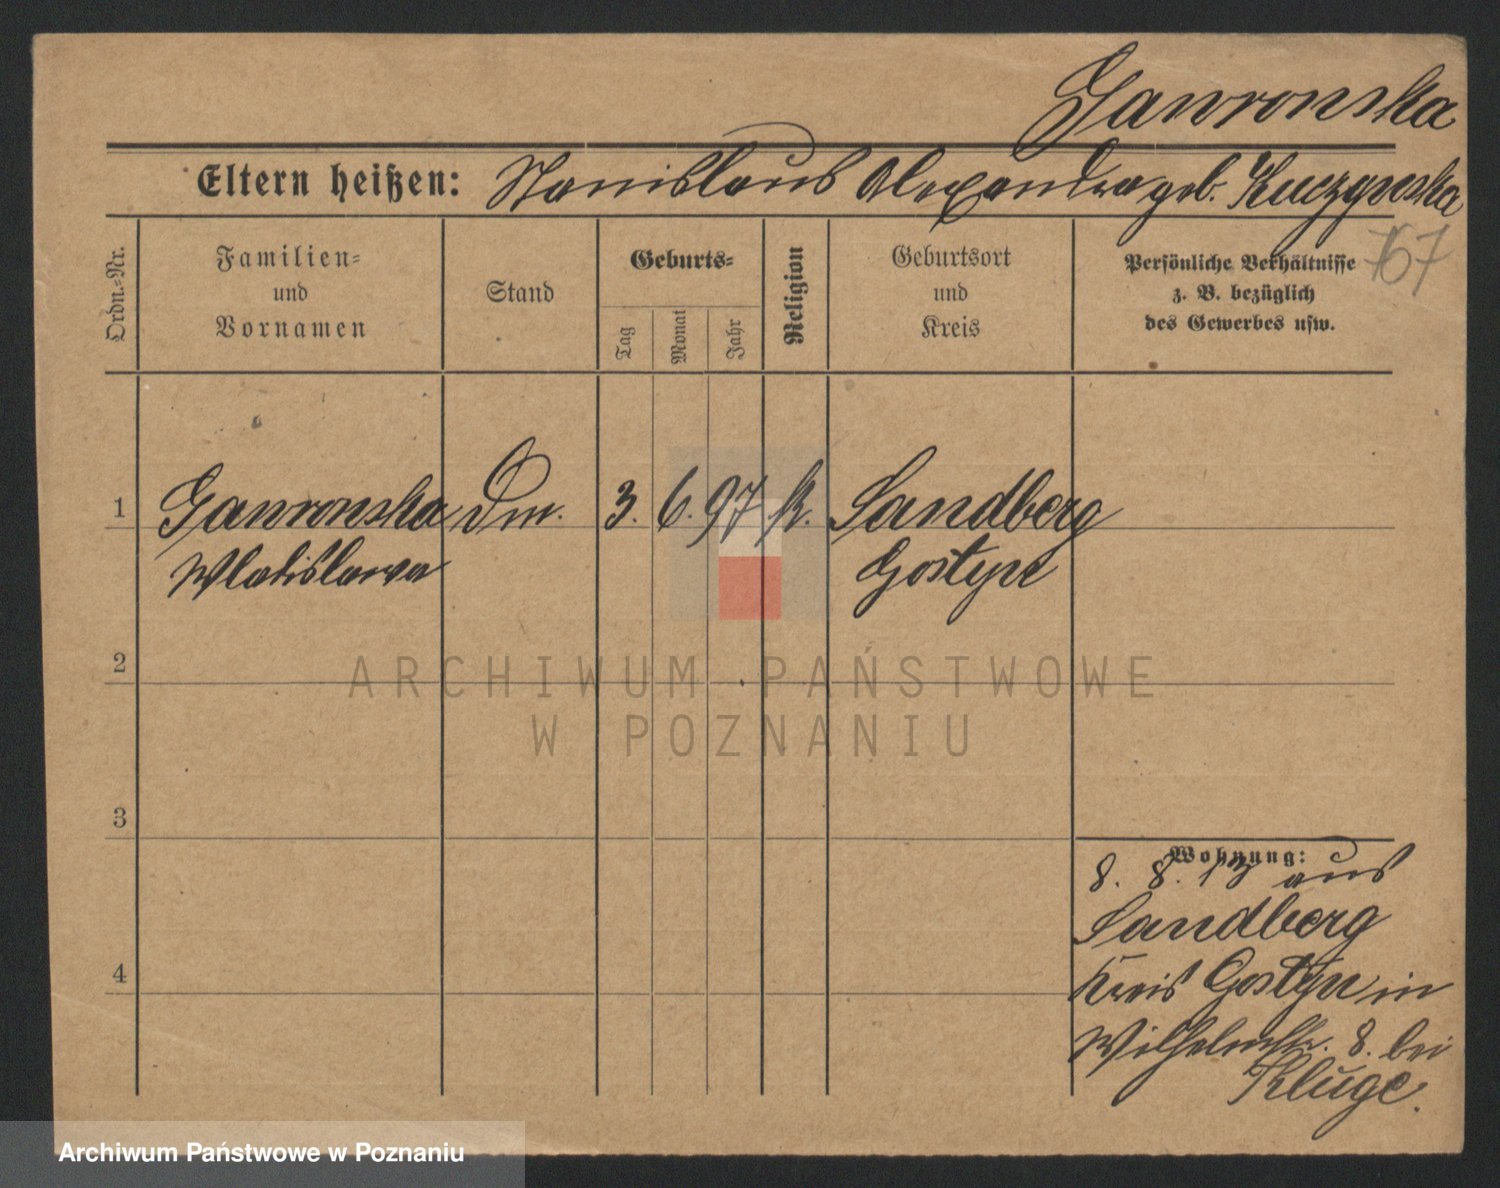 Gawronska
Eltern heißen: Stanislaus Alexandra geb.
767
Ordn.=Nr.
Familien=
und
Vornamen
Stand
Geburts=
Tag
Monat
Jahr
Religion
Geburtsort
und
Kreis
Persönliche Verhältnisse
z. B. bezüglich
des Gewerbes usw.
1 Gawronska Dm. 3. 6. 97 k. Sandberg
Wladislawa Gostyn
2
3
4
Wohnung:
8. 8. 13 aus
Sandberg
Kreis Gostyn in
Wilhelmstr. 8. bei
Kluge.
ARCHIWUM PAŃSTWOWE
W POZNANIU
Archiwum Państwowe w Poznaniu